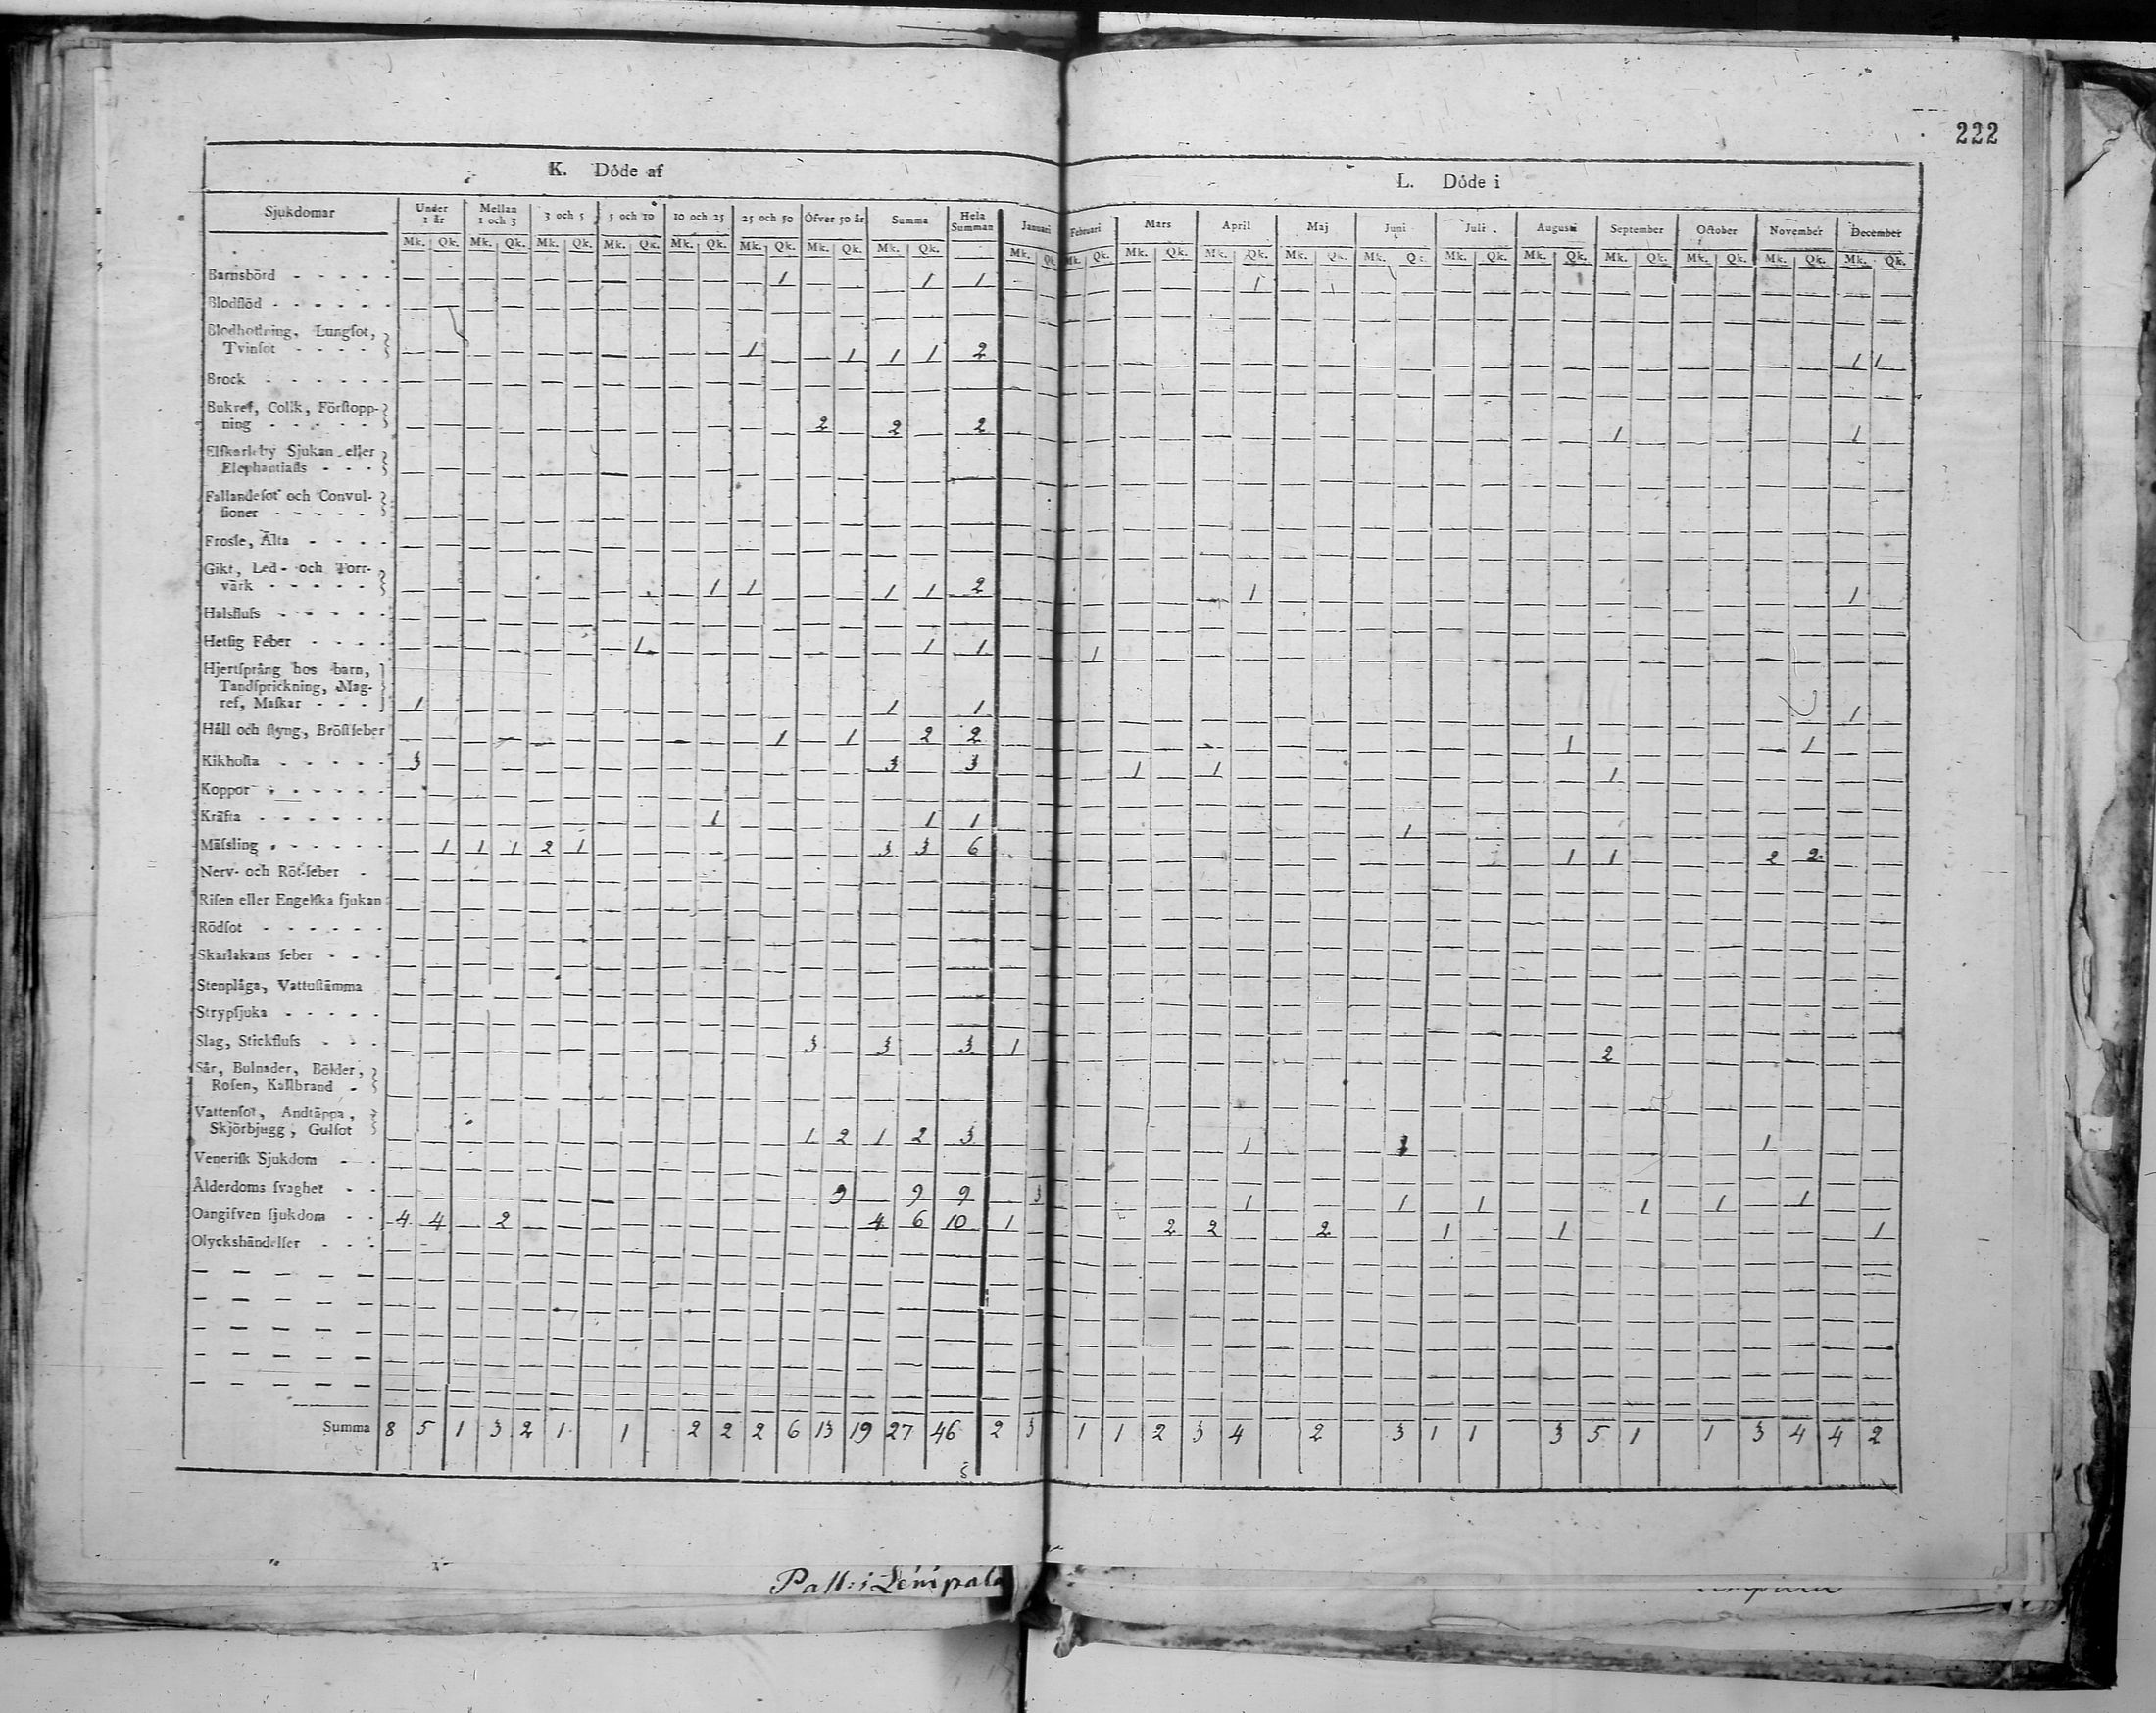 222
K. Döde af
L. Döde i
Sjukdomar Under 1 år Mellan 1 och 3 3 och 5 5 och 10 10 och 25 25 och 50 Öfver 50 år Summa Hela Summan Januari Februari Mars April Maj Juni Juli Augusti September October November December
Mk. Qk. Mk. Qk. Mk. Qk. Mk. Qk. Mk. Qk. Mk. Qk. Mk. Qk. Mk. Qk. Mk. Qk. Mk. Qk. Mk. Qk. Mk. Qk. Mk. Qk. Mk. Qk. Mk. Qk. Mk. Qk. Mk. Qk. Mk. Qk. Mk. Qk. Mk. Qk.
Barnsbörd - - - - - 1 1 1 1
Blodflöd - - - - - -
Blodhostning, Lungsot,
Tvinsot - - - - 1 1 1 1 2 1 1
Brock - - - - - -
Bukref, Colik, Förstopp-
ning - - - - - 2 2 2 1 1
Elfkarleby Sjukan eller
Elephantiasis - - -
Fallandesot och Convul-
sioner - - - - -
Frossa, Älta - - - -
Gikt, Led- och Torr-
värk - - - - - 1 1 1 1 2 1 1
Halsfluss - - - - -
Hetsig Feber - - - - 1 1 1 1
Hjertsprång hos barn,
Tandsprickning, Mag-
ref, Maskar - - - 1 1 1 1
Håll och styng, Bröstfeber 1 1 2 2 1 1
Kikhosta - - - - - 3 3 3 1 1 1
Koppor - - - - - -
Kräfta - - - - - - 1 1 1 1
Mässling - - - - - - 1 1 1 2 1 3 3 6 1 1 2 2
Nerv- och Röt-feber -
Risen eller Engelska sjukan
Rödsot - - - - - -
Skarlakans feber - - -
Stenplåga, Vattustämma
Strypsjuka - - - - -
Slag, Stickfluss - - - 3 3 3 1 2
Sår, Bulnader, Bölder,
Rosen, Kallbrand -
Vattensot, Andtäppa,
Skjörbjugg, Gulsot 1 2 1 2 3 1 1 1
Venerisk Sjukdom - -
Ålderdoms svaghet - - 9 9 9 3 1 1 1 1 1 1
Oangifven sjukdom - - 4 4 2 4 6 10 1 2 2 2 1 1 1
Olyckshändelser - - -
Summa 8 5 1 3 2 1 1 2 2 2 6 13 19 27 46 2 3 1 1 2 3 4 2 3 1 1 3 5 1 1 3 4 4 2
Past: i Lempälä